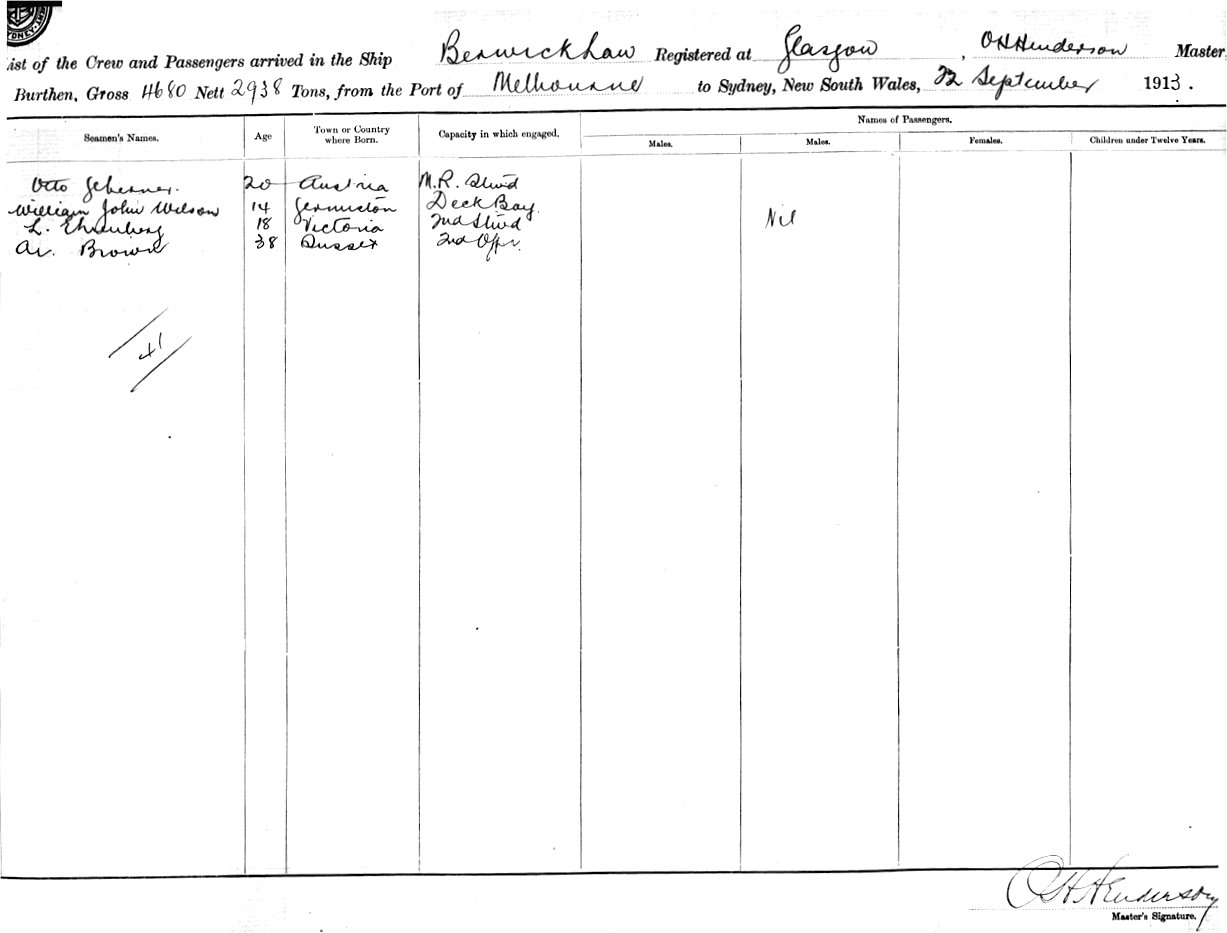 SYDNEY
ist of the Crew and Passengers arrived in the Ship Berwickhaw Registered at Glasgow, OHHenderson Master,
Burthen, Gross 4680 Nett 2938 Tons, from the Port of Melbourne to Sydney, New South Wales, 22 September 1913.
Seamen's Names. Age Town or Country where Born. Capacity in which engaged. Names of Passengers.
Males. Males. Females. Children under Twelve Years.
Otto 20 Austria M.R. Stwd
William John Wilson 14 Germiston Deck Boy.
L. Ehrenberg 18 Victoria 2nd Stwd
Ar. Brown 38 Sussex 2nd Offr.
Nil
OHHenderson
Master's Signature.